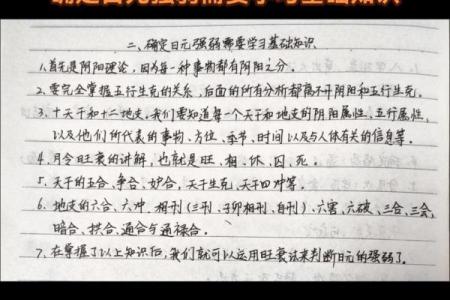 二、确定日元强弱需要学习基础知识
1、首先是阴阳理论，因为每一种事物都有阴阳之分。
2、要完全掌握五行生克的关系，后面的所有分析都离不开阴阳和五行生克。
3、十天干和十二地支，我们要知道每一个天干和地支的阴阳属性、五行属性，
以及他们所代表的事物、方位、季节、时间以及与人体有关的信息等。
4、月令旺衰的讲解，也就是旺、相、休、囚、死。
5、天干的五合、争合、妒合，天干生克，天干四冲等。
6、地支的六合、六冲、相刑（三刑、子卯相刑、自刑）、六害、六破、三合、三会，
暗合、拱合、通合与通禄合。
7、在掌握了以上知识后，我们就可以运用旺衰法来判断日元的强弱了。